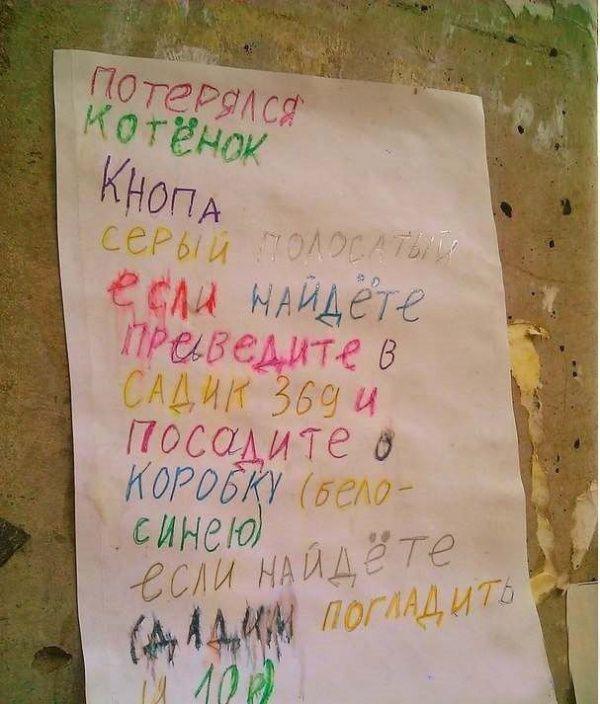 ПОТЕРЯЛСЯ
КОТЁНОК
КНОПА
СЕРЫЙ ПОЛОСАТЫЙ
если НАЙДЁТЕ
ПРЕВЕДИТЕ В
САДИК 369 и
ПОСАДИТЕ В
КОРОБКУ (БЕЛО-
СИНЕЮ)
ЕСЛИ НАЙДЁТЕ
ДАДИМ ПОГЛАДИТЬ
И 10 р